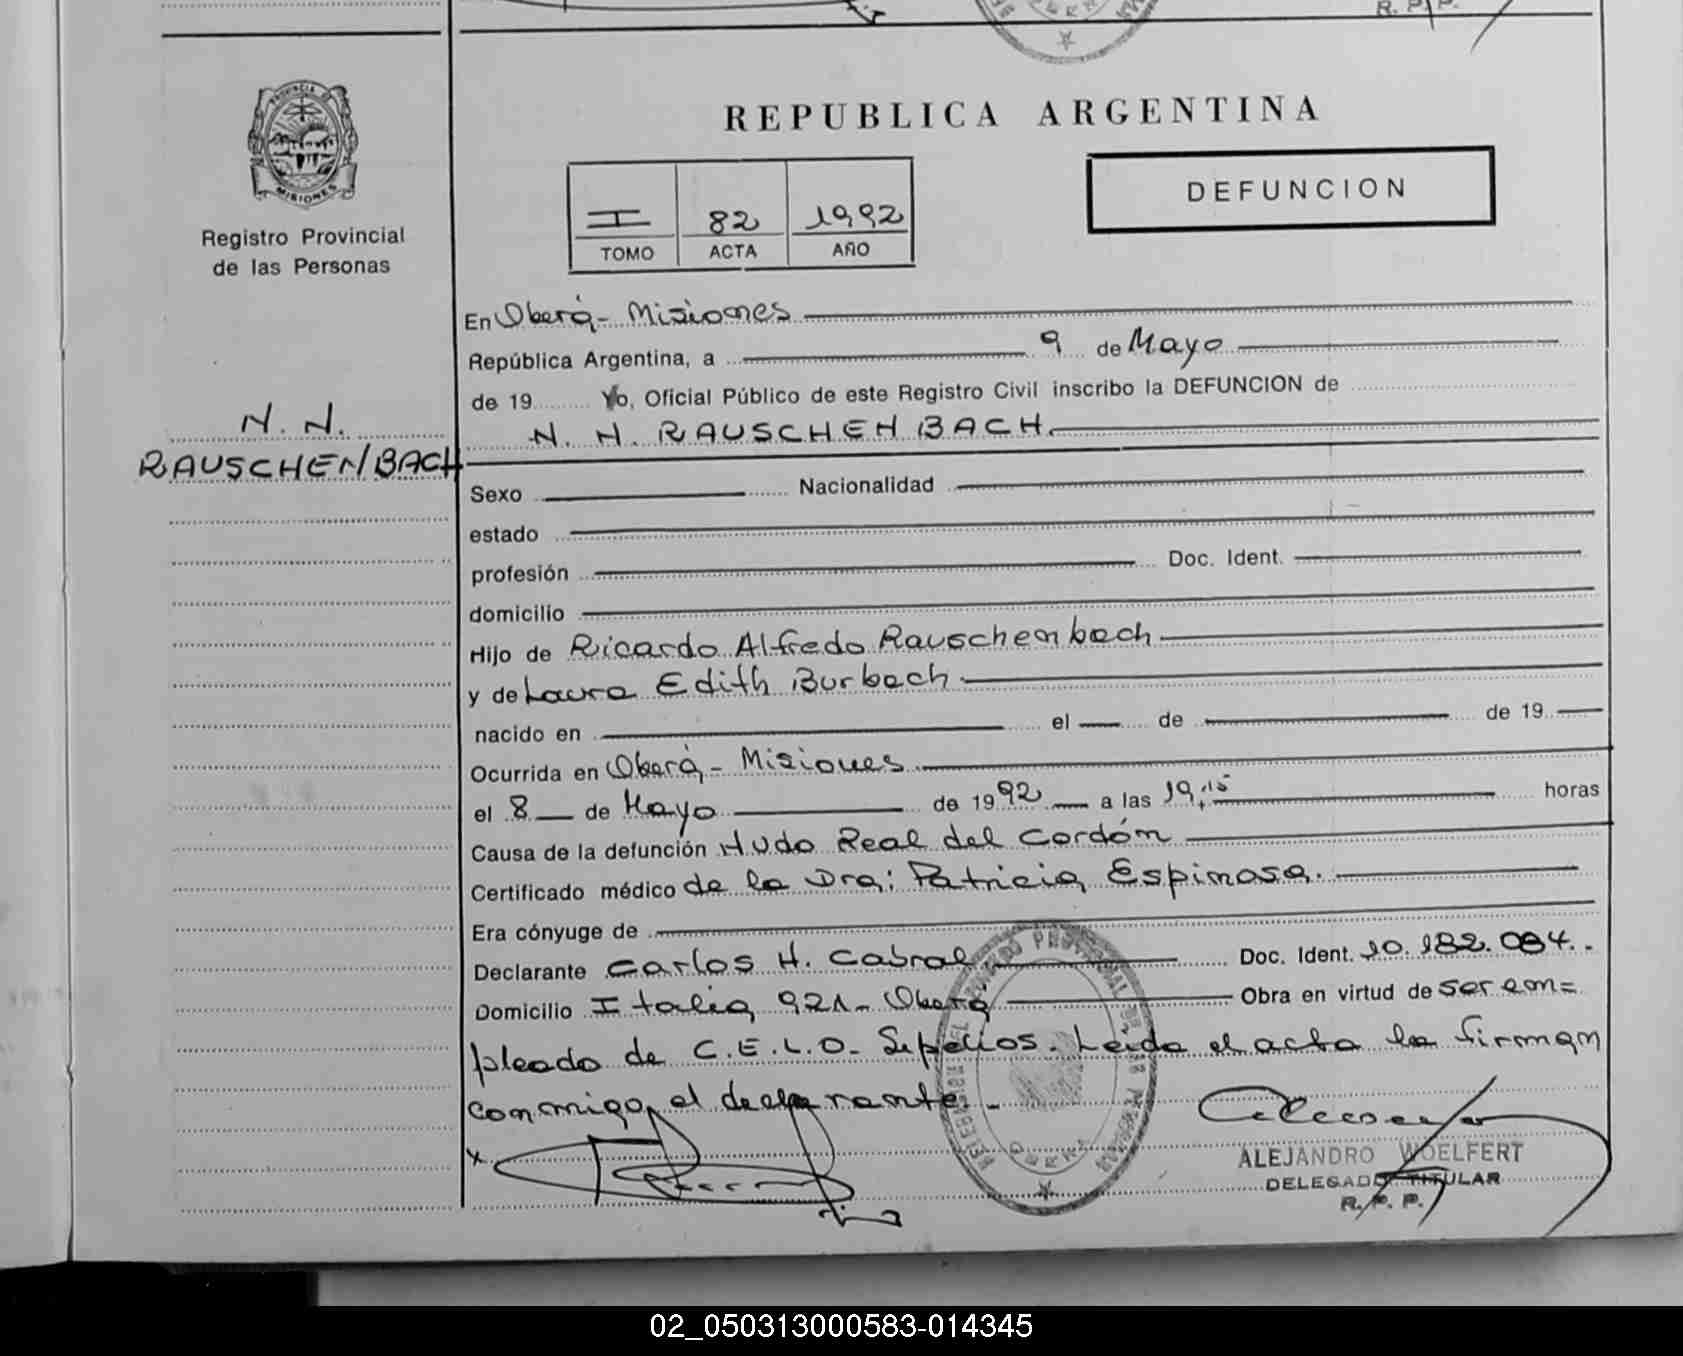 R. P. P.
PROVINCIA DE
MISIONES
Registro Provincial
de las Personas
N. N.
RAUSCHENBACH
REPUBLICA ARGENTINA
DEFUNCION
I 82 1992
TOMO ACTA AÑO
En Oberá - Misiones
República Argentina, a 9 de Mayo
de 19 Yo, Oficial Público de este Registro Civil inscribo la DEFUNCION de
N. N. RAUSCHENBACH.
Sexo Nacionalidad
estado
profesión Doc. Ident.
domicilio
Hijo de Ricardo Alfredo Rauschenbach
y de Laura Edith Burbach
nacido en el de de 19
Ocurrida en Oberá - Misiones
el 8 de Mayo de 1992 a las 19,15 horas
Causa de la defunción Nudo Real del Cordón
Certificado médico de la Dra: Patricia Espinosa.
Era cónyuge de
Declarante Carlos H. Cabral Doc. Ident. 10.182.084.
Domicilio Italia 921 - Oberá Obra en virtud de ser em=
pleado de C.E.L.O. Sepelios. Leída el acta la firman
conmigo, el declarante.
OBERA
ALEJANDRO WOELFERT
DELEGADO TITULAR
R. P. P.
02_050313000583-014345